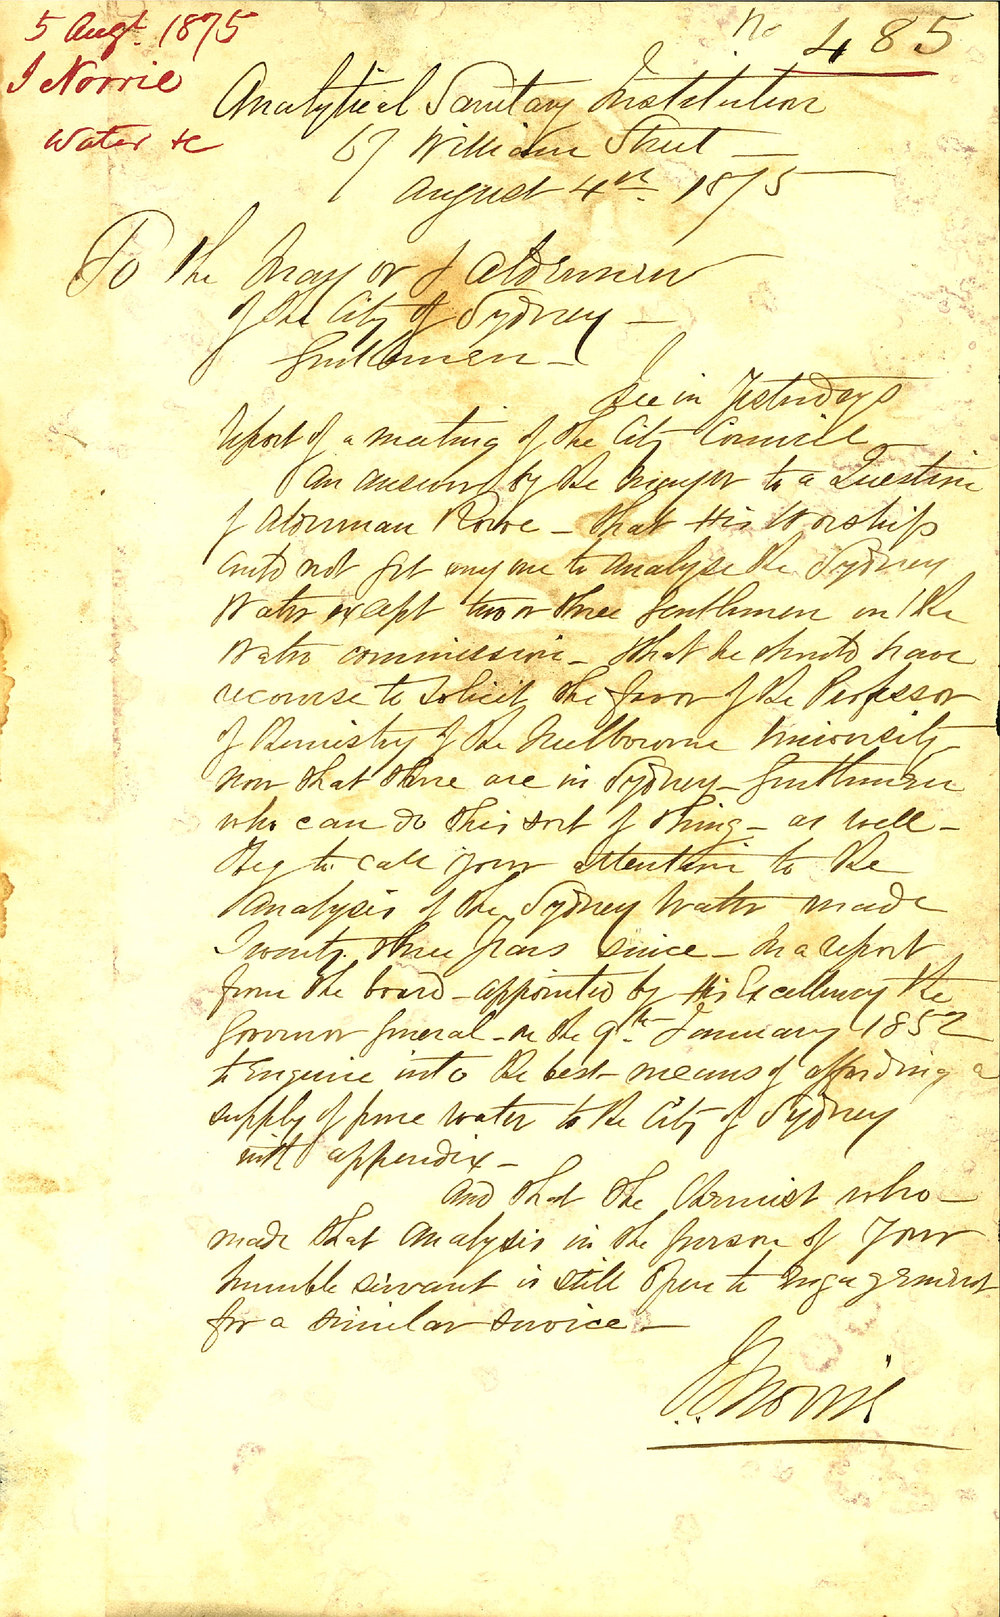 5 Augt. 1875
No 485
J Norrie
Water &c
Analytical Sanitary Institution
67 William Street —
August 4th 1875
To the Mayor & Aldermen
of the City of Sydney —
Gentlemen —
I see in Yesterdays
report of a meeting of the City Council —
An answer by the Mayor to a Question
of Alderman Rowe — that His Worship
could not get any one to analyse the Sydney
Water except two or three Gentlemen on the
Water commission — that he should have
recourse to solicit the favor of the Professor
of Chemistry of the Melbourne University
now that there are in Sydney — Gentlemen
who can do this sort of thing — as well —
I beg to call your attention to the
Analysis of the Sydney Water made
Twenty three Years since — In a report
from the board — appointed by His Excellency the
Governor General — on the 9th January 1852
to Enquire into the best means of affording a
supply of pure water to the City of Sydney
with appendix —
And that the Chemist who —
made that Analysis in the person of Your
humble servant is still open to Engagement
for a similar service —
J. Norrie